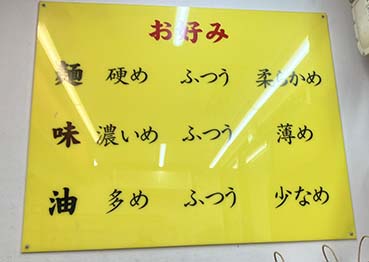 お好み
麺 硬め ふつう 柔らかめ
味 濃いめ ふつう 薄め
油 多め ふつう 少なめ